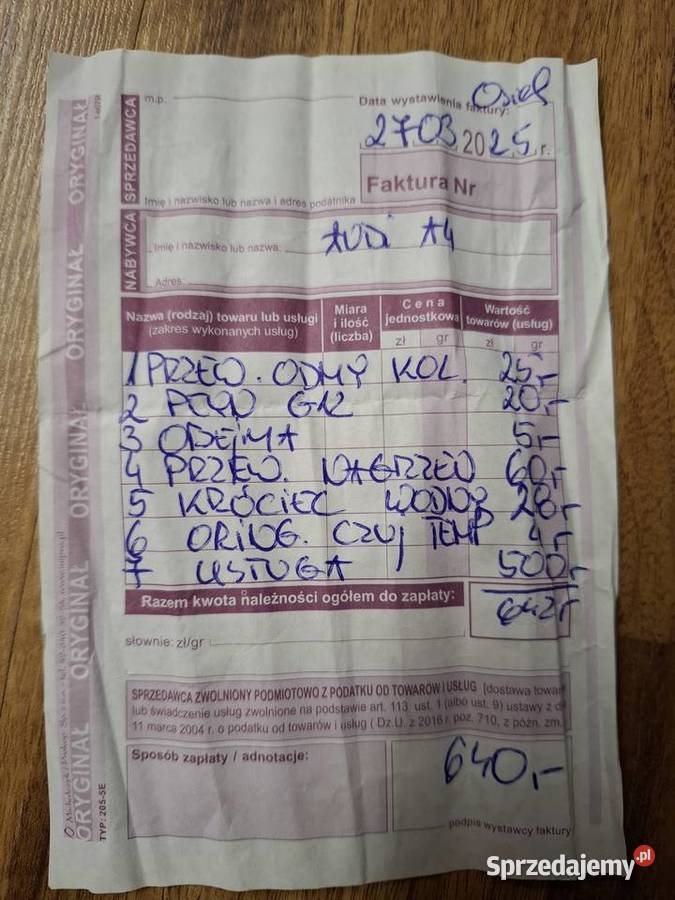 m.p.
Data wystawienia faktury:
27.03.2025 r.
Faktura Nr
SPRZEDAWCA
Imię i nazwisko lub nazwa i adres podatnika
NABYWCA
Imię i nazwisko lub nazwa: AUDI A4
Adres:
Nazwa (rodzaj) towaru lub usługi
(zakres wykonanych usług)
Miara
i ilość
(liczba)
Cena
jednostkowa
zł gr
Wartość
towarów (usług)
zł gr
1 PRZEW. ODMY KOL. 25,-
2 PŁYN G12 20,-
3 OBEJMA 5,-
4 PRZEW. NAGRZEW 60,-
5 KRÓCIEC WODNY 28,-
6 ORING. CZUJ TEMP 4,-
7 USŁUGA 500,-
Razem kwota należności ogółem do zapłaty: 642,-
słownie: zł/gr
SPRZEDAWCA ZWOLNIONY PODMIOTOWO Z PODATKU OD TOWARÓW I USŁUG [dostawa towar
lub świadczenie usług zwolnione na podstawie art. 113, ust. 1 (albo ust. 9) ustawy z d
11 marca 2004 r. o podatku od towarów i usług ( Dz.U. z 2016 r. poz. 710, z późn. zm.
Sposób zapłaty / adnotacje:
640,-
podpis wystawcy faktury
ORYGINAŁ ORYGINAŁ ORYGINAŁ ORYGINAŁ ORYGINAŁ
TYP: 205-5E
Sprzedajemy.pl